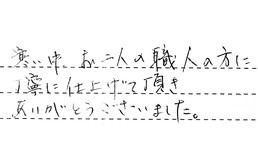 寒い中 お二人の職人の方に
丁寧に仕上げて頂き
ありがとうございました。